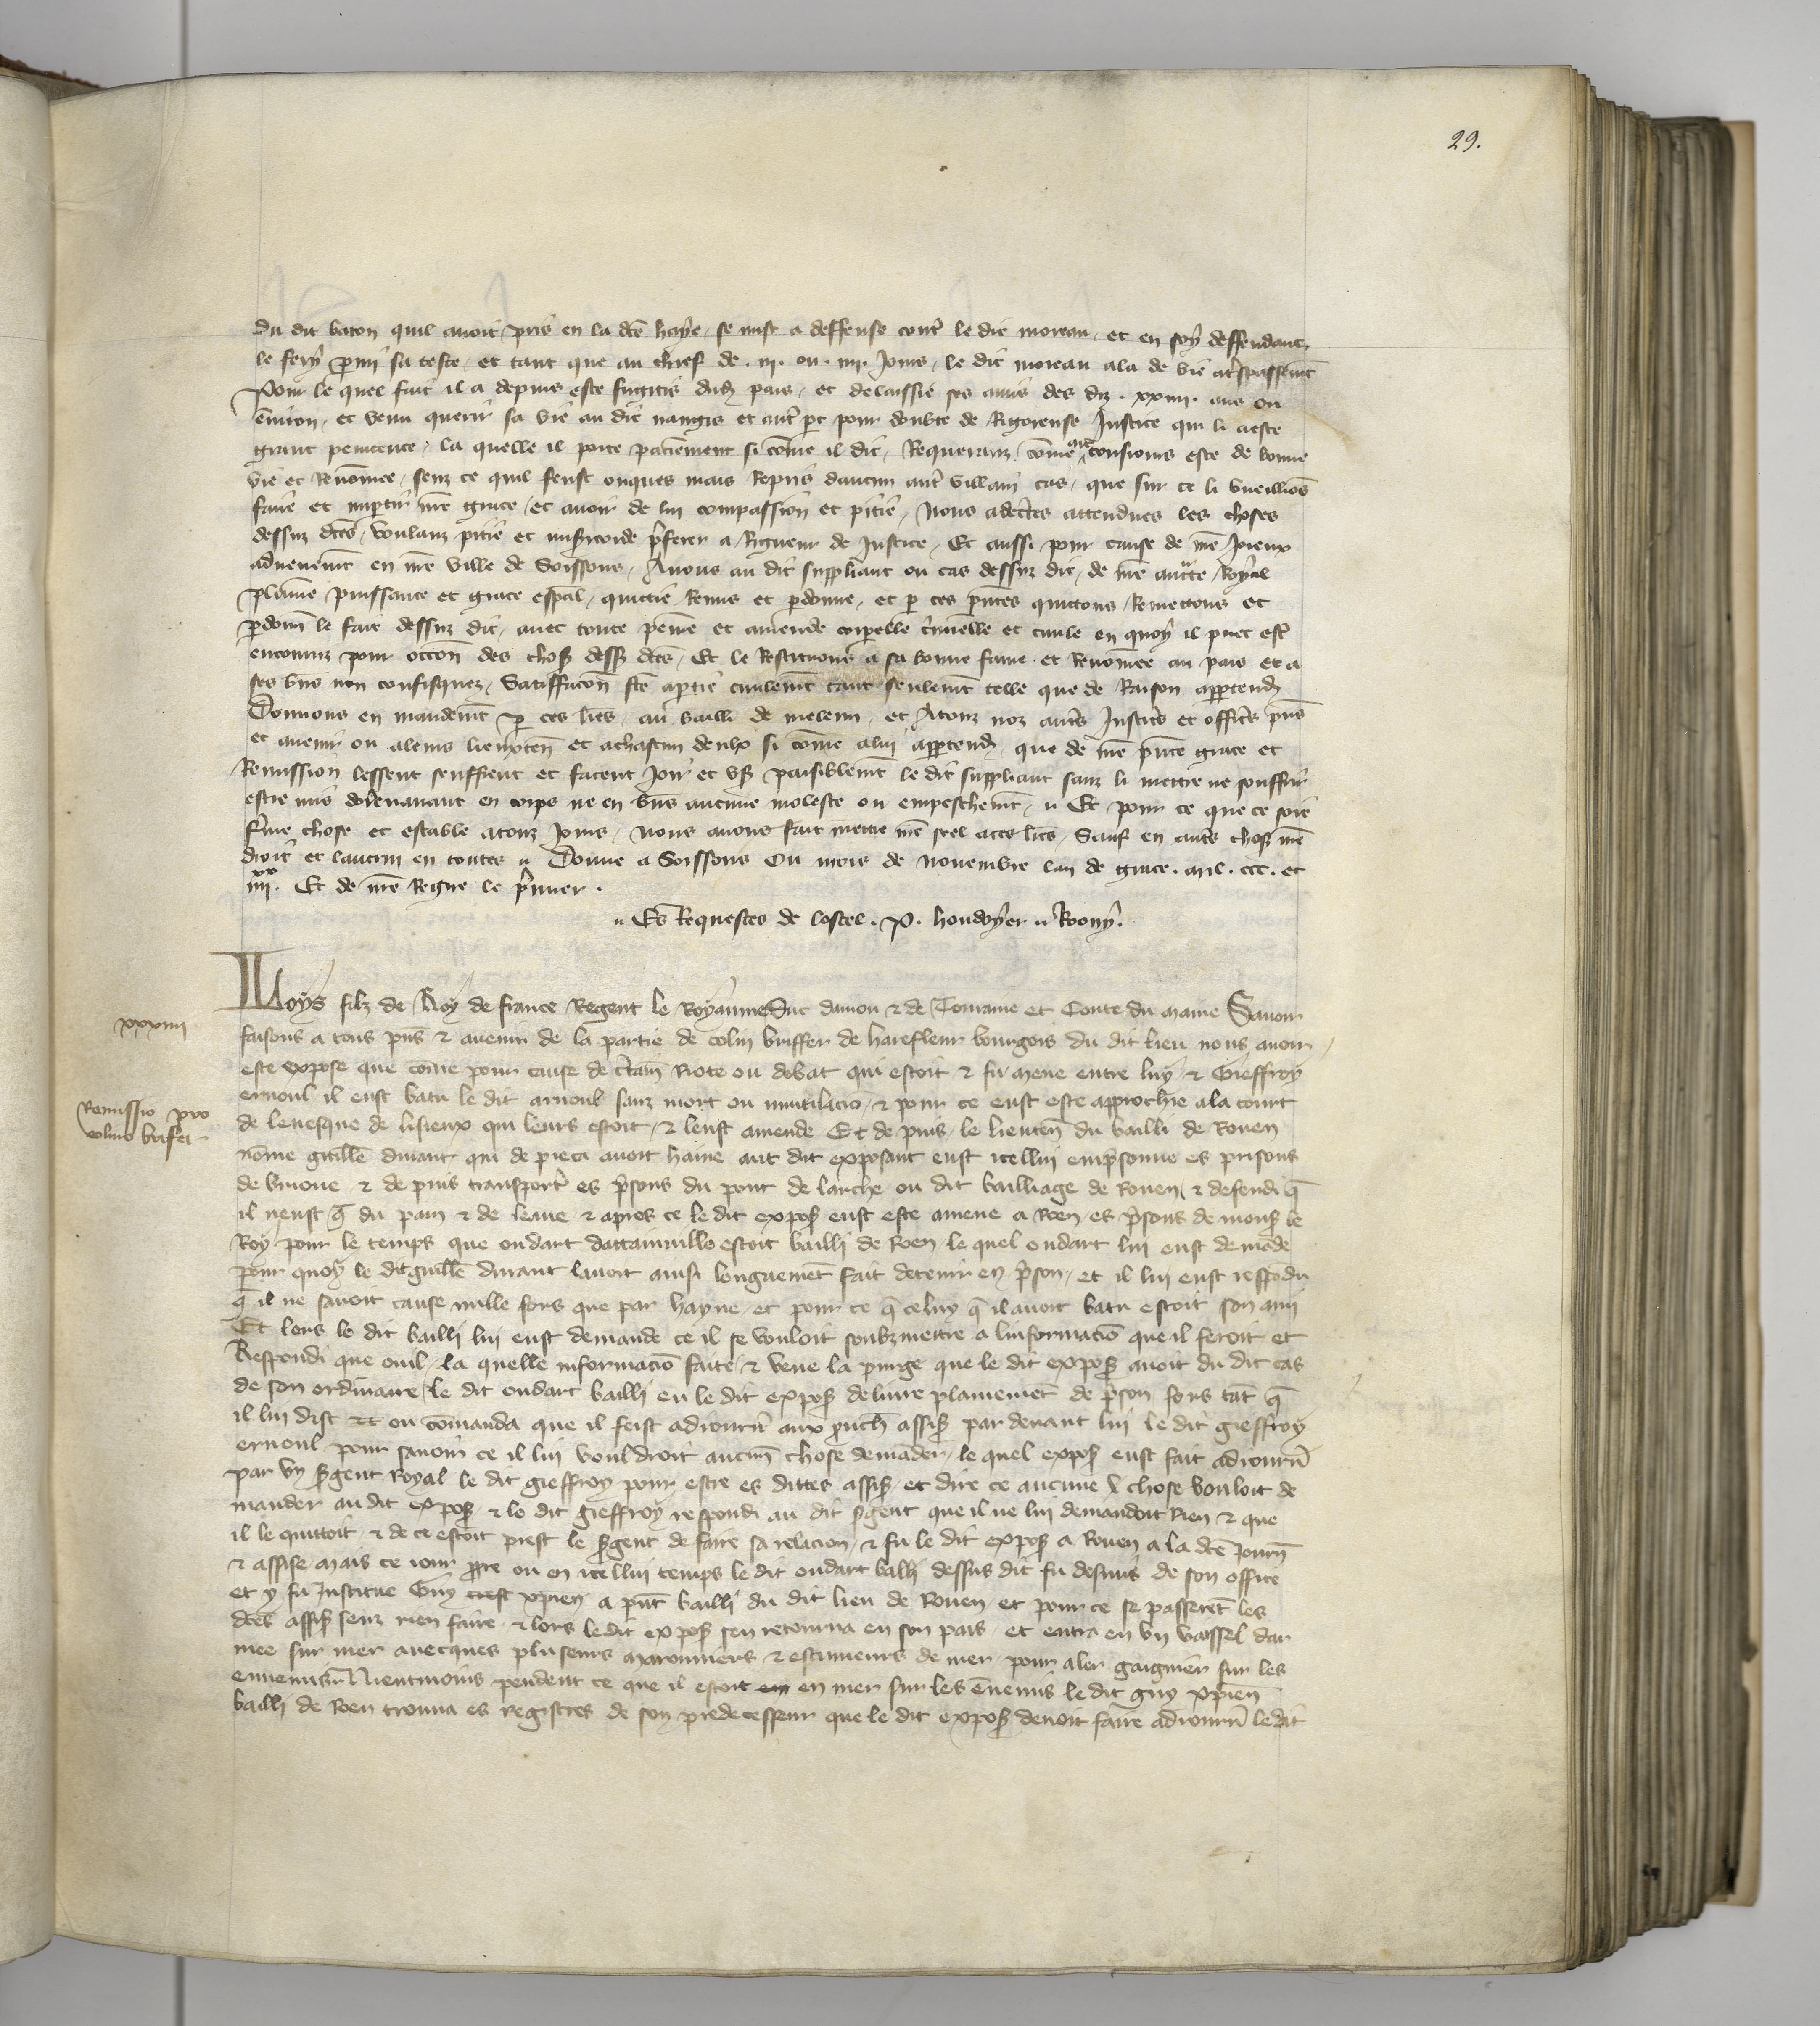 29.
du dit baton quil avoit pris en la dce haye, se mist a deffense contr le dit moreau, et en soy deffendant
le fery pmi sa teste, et tant que au chief de . iii. ou . iiii. Jours, le dit moreau ala de vie a trespassemt
Pour le quel fait il a depuis este fugitis dud pais, et delaissie ses amis des diz . xxiiii. ans ou
environ, et venu querir sa vie au dit nangis et autr pt pour doubte de Rigoreuse Justice qui li a este
grant penitence, la quelle il porte paciemment si come il dit, Requerant, come
vie et Renomee, senz ce quil feust onques mais Repris daucun autr villain cas, que sur ce li vueillions
faire et impartir nre grace, et avoir de lui compassion et pitie, Nous adecertes attendues les choses
dessuz dces, voulanz pitie et misericorde pferer a Rigueur de Justice, Et aussi pour cause de nre Joieux
advenemt en nre ville de Soissons, Avons au dit suppliant ou cas dessuz dit, de nre auctte Royal
plaine puissance et grace espal, quittie Remis et pdonne, et p ces pntes quittons Remettons et
pdonn le fait dessuz dit, avec toute peine et amende corpelle criminelle et civile en quoy il puet estr
encouruz pour occon des chos dess dces, Et le Restituons a sa bonne fame et Renomee au pais et a
ses bns non confisquez, Satiffacon fce a ptie civilemt tant seulemt telle que de Raison apptend
Donnons en mandemt p ces lres, au bailli de meleun, et Atouz noz autrs Justicrs et officrs pns
et avenir ou aleurs lieuxten et achascun deulx si come a lui apptend, que de nre pnte grace et
Remission lessent seuffrent et facent Joir et us paisiblemt le dit suppliant sanz li mettre ne souffrir
estre mis dorenavant en corps ne en bns aucune moleste ou empeschemt, Et pour ce que ce soit
ferme chose et estable atouz Jours, Nous avons fait mettre nre seel a ces lres, Sauf en autrs chos nre
droit et lautrui en toutes Donne a Soissons Ou mois de Novembre lan de grace . mil . ccc . et
iiii xx. Et de nre Regne le pmier .
Es Requestes de lostel . P. houdoyer Roony.
xxxiiii
Remissio pro
colino briffer
Loys filz de Roy de france Regent le Royaume Duc danjou & de Touraine et Conte du maine Savoir
faisons a tous pns & avenir de la partie de colin briffer de harefleur bourgois du dit lieu nous avoir
este expose que come pour cause de ctain Riote ou debat qui estoit & fu mene entre luy & Gieffroy
ernoul il eust batu le dit arnoul sanz mort ou mutilacio, & pour ce eust este approchie a la court
de levesque de lisieux qui leurs estoit, & leust amende Et de puis, le lieuten du bailli de Rouen
nome guille durant qui de pieca avoit haine aut dit exposant eust icellui emprsonne es prisons
de & de puis transporte es prsons du pont de larche ou dit bailliage de Rouen, & defendi q
il neust q du pain & de leaue & apres ce le dit expos eust este amene a Roen es prsons de mons le
Roy pour le temps que oudart dattainville estoit bailli de Roen le quel oudart lui eust demade
pour quoy le dit guille durant lavoit ainsi longuemet fait detenir en prson, et il lui eust respodu
q il ne savoit cause nulle fors que par hayne, et pour ce q celuy q il avoit batu estoit son ami
Et lors le dit bailli lui eust demande ce il se vouloit soubzmettre a linformacio que il feroit et
Respondi que ouil, la quelle informacio faite & veue la purge que le dit expos avoit du dit cas
de son ordinaire le dit oudart bailli eu le dit expos delivre plainemet de prson fors tat q
il lui dist et ou comanda que il feist adjourn aux pouch assis par devant lui le dit gieffroy
ernoul pour savoir ce il lui vouldroit aucun chose demader, le quel expos eust fait adjourn
par un sgent Royal le dit gieffroy pour estre es dittes assis, et dire ce aucune chose vouloit de
mander au dit expos, & le dit gieffroy respondi au dit sgent que il ne lui demandoit Rien & que
il le quittoit, & de ce estoit prest le sgent de faire sa relacion, & fu le dit expos a Rouen a la dce Journ
& assise, mais ce iour ppre ou en icellui temps le dit oudart balli dessus dit fu desmis de son office
et y fu Institue Guy crest xpien a pnt bailli du dit lieu de Rouen et pour ce se passeret les
dces assis senz rien faire, & lors le dit expos sen retourna en son pais, et entra en un vaissel dar
mee sur mer avecques pluseurs maronniers & escumeurs de mer, pour aler gaignier sur les
ennemis Nientmoins pendent ce que il estoit en mer sur les enemis le dit guy xpien
bailli de Roen trouva es registres de son predecesseur que le dit expos devoit faire adjourn ledit